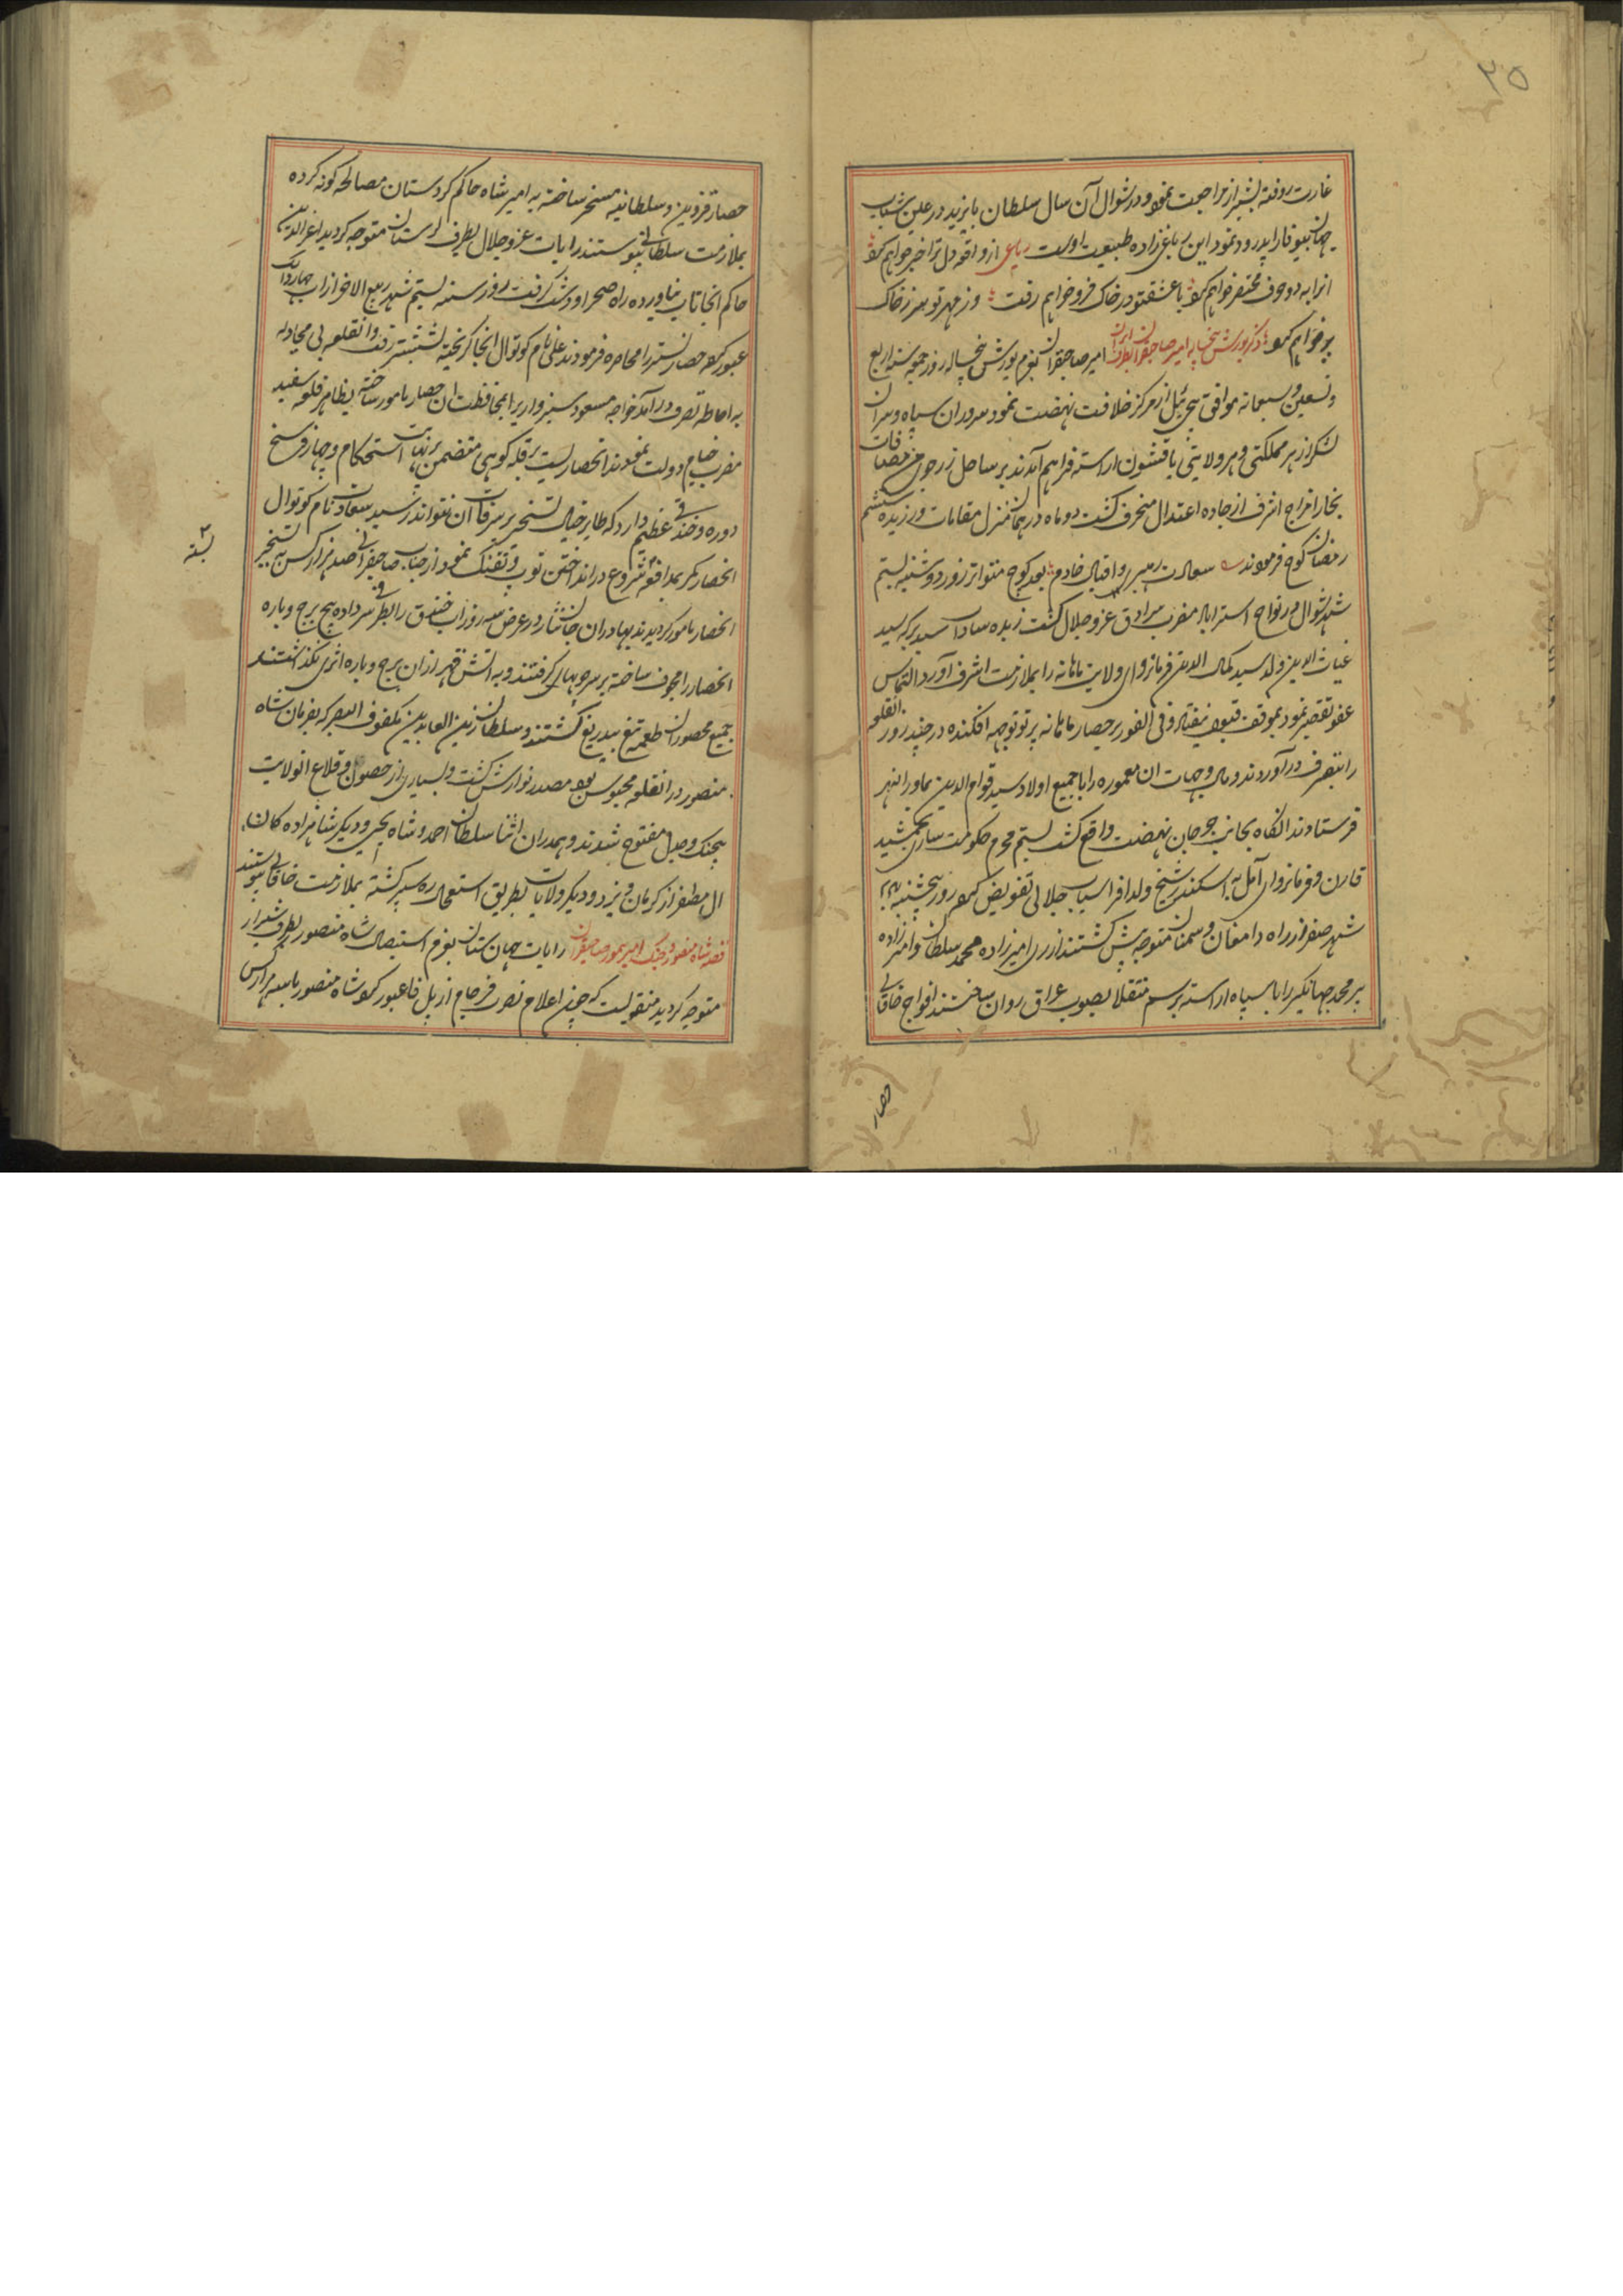 ۳۵
غارت رفته بشیراز مراجعت نمود و در شوال آن سال سلطان بایزید در عین شباب
جهان بیوفا را پدرود نمود این رباعی زاده طبیعت اوست رباعی از واقعه دل ترا خبر خواهم کرد
انرا به دو حرف مختصر خواهم کرد با عشق تو در خاک فرو خواهم رفت وز مهر تو سر ز خاک
بر خواهم کرد ذکر یورش پنجساله امیر صاحبقران بطرف ایران امیر صاحبقران بعزم یورش پنجساله روز جمعه سنه اربع
و تسعین و سبعمائه موافق پیچی ئیل از مرکز خلافت نهضت نمود سروران سپاه و سران
لشکر از هر مملکتی و هر ولایتی با قشون اراسته فراهم آمدند بر ساحل زرجوی من مضافات
بخارا مزاج اشرف از جاده اعتدال منحرف گشت دو ماه در همان منزل مقامات ورزیده ششم
رمضان کوچ فرمودند سعادت رهبر و اقبال خادم بعد کوچ متواتر روز دوشنبه بیستم
شهر شوال در نواح استراباد مضرب سرادق عز و جلال گشت زبده سادات سید برکه سید
غیاث الدین ولد سید کمال الدین فرمانروای ولایت ماهانه را بملازمت اشرف آورد التماس
عفو تقصیر نمود بموقف قبول نیفتاد و فی الفور بر حصار ماهانه پرتو توجه افکنده در چند روز انقلعه
را بتصرف در آوردند و مال و جهات ان معموره را با جمیع اولاد سید قوام الدین بماوراالنهر
فرستادند انگاه بجانب جرجان نهضت واقع گشت بیستم محرم حکومت ساری بجمشید
قارن و فرمانروای آمل به اسکندر شیخ ولد افراسیاب جلالی تفویض کرده روز پنجشنبه
شهر صفر از راه دامغان و سمنان متوجه پیش گشتند از ری امیرزاده محمد سلطان و امیرزاده
پیر محمد جهانگیر را با سپاه اراسته برسم منقلا بصوب عراق روان ساختند افواج خاقانی
حصار
حصار قزوین و سلطانیه مسخر ساخته به امیر شاه حاکم کردستان مصالحه گونه کرده
بملازمت سلطانی پیوستند رایات عز و جلال بطرف لرستان متوجه گردید اعزالدین
حاکم انجا تاب نیاورده راه صحرا و دشت گرفت روز سه شنبه بیستم شهر ربیع الاخر از اب چهاردانک
عبور کرده حصار تستر را محاصره فرمودند علی نام کوتوال انجا گریخته بشستر رفت و انقلعه بی مجادله
به احاطه تصرف در آمد خواجه مسعود سبزواریرا بمحافظت ان حصار مامور ساخته بظاهر قلعه سفید
مضرب خیام دولت نمودند انحصاریست بر قله کوهی متضمن برنهایت استحکام و چهار فرسخ
دوره و خندقی عظیم دارد که طایر خیال تسخیر بر شرفات آن نتواند رسید سعادت نام کوتوال
انحصار کمر بمدافعه شروع در انداختن توپ و تفنگ نمود از جناب صاحبقرانی صد هزار کس به تسخیر
بسته
انحصار مامور گردیدند بهادران جانثار در عرض سه روز اب خندق را بطرفی سر داده هیچ برج و باره
انحصار را مجوف ساخته بر سر چوبها گرفتند و به اتش قهر ازان برج و باره اثری نگذاشتند
جمیع محصوران طعمه تیغ بیدریغ گشتند و سلطان زین العابدین مکفوف البصر که بفرمان شاه
منصور در انقلعه محبوس بود مصدر نوازش گشت و بسیاری از حصون و قلاع انولایت
بجنک و صلح مفتوح شدند و همدران اثنا سلطان احمد و شاه یحیی و دیگر شاهزاده کان
ال مظفر از کرمان و یزد و دیگر ولایات بطریق استعجال ره سپر گشته بملازمت خاقانی پیوستند
قصه شاه منصور و جنک امیر تیمور صاحبقران رایات جهان ستان بعزم استیصال شاه منصور بطرف شیراز
متوجه گردید منقولست که چون اعلام نصرت فرجام از پل فا عبور کرد شاه منصور با سه هزار کس